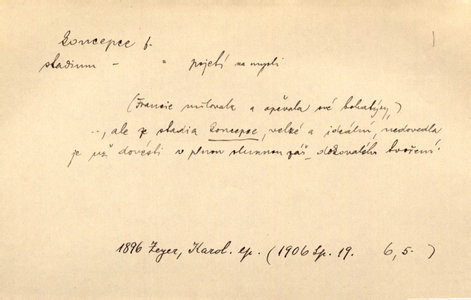 koncepce f.
stadium – " pojetí na mysli
(Francie milovala a opěvala své bohatýry,)
.., ale ze stadia koncepce, velké a ideální, nedovedla
je už dovésti v plnou slunnou zář dokonalého tvoření.
1896 Zeyer, Karol. ep. (1906 Sp. 19. 6, 5.)